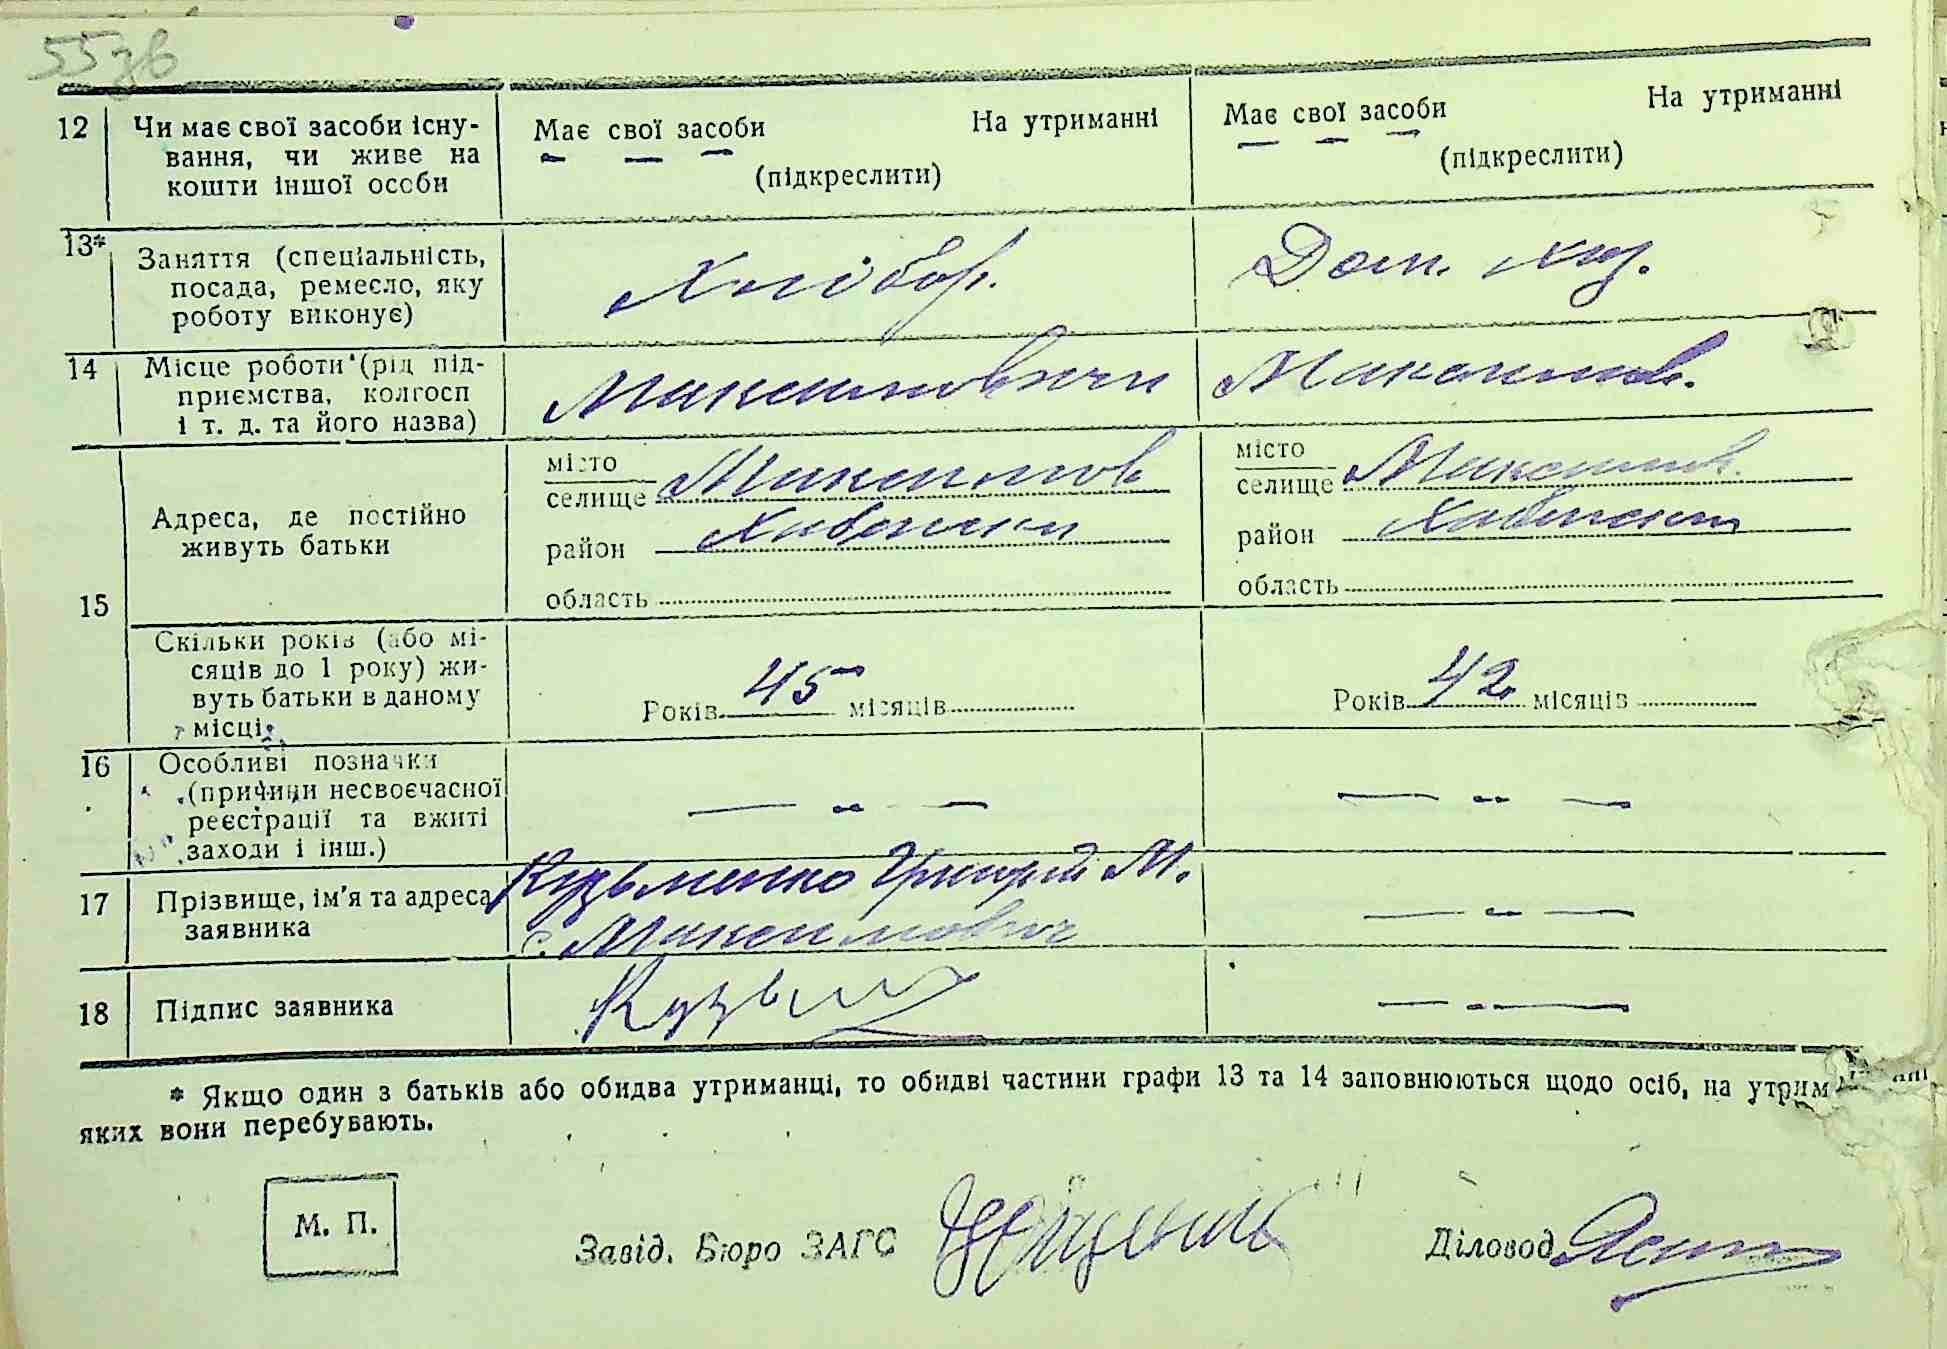 55 зв
12 Чи має свої засоби існу-
вання, чи живе на
кошти іншої особи
Має свої засоби На утриманні
(підкреслити)
Має свої засоби На утриманні
(підкреслити)
13* Заняття (спеціальність,
посада, ремесло, яку
роботу виконує)
Хлібор.
Дом. хаз.
14 Місце роботи (рід під-
приємства, колгосп
і т. д. та його назва)
Максимовичи
Максимов.
15 Адреса, де постійно
живуть батьки
місто
селище Максимов
район Хабенски
область
місто
селище Максимов.
район Хабенски
область
Скільки років (або мі-
сяців до 1 року) жи-
вуть батьки в даному
місці
Років 45 місяців
Років 42 місяців
16 Особливі позначки
(причини несвоєчасної
реєстрації та вжиті
заходи і інш.)
— „ —
— „ —
17 Прізвище, ім'я та адреса
заявника
Кузьменко Григорій М.
с. Максимович
— „ —
18 Підпис заявника
Кузьм
— „ —
* Якщо один з батьків або обидва утриманці, то обидві частини графи 13 та 14 заповнюються щодо осіб, на утриманні
яких вони перебувають.
М. П.
Завід. Бюро ЗАГС
Діловод